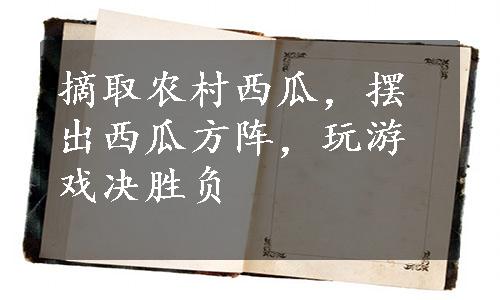 摘取农村西瓜，摆
出西瓜方阵，玩游
戏决胜负